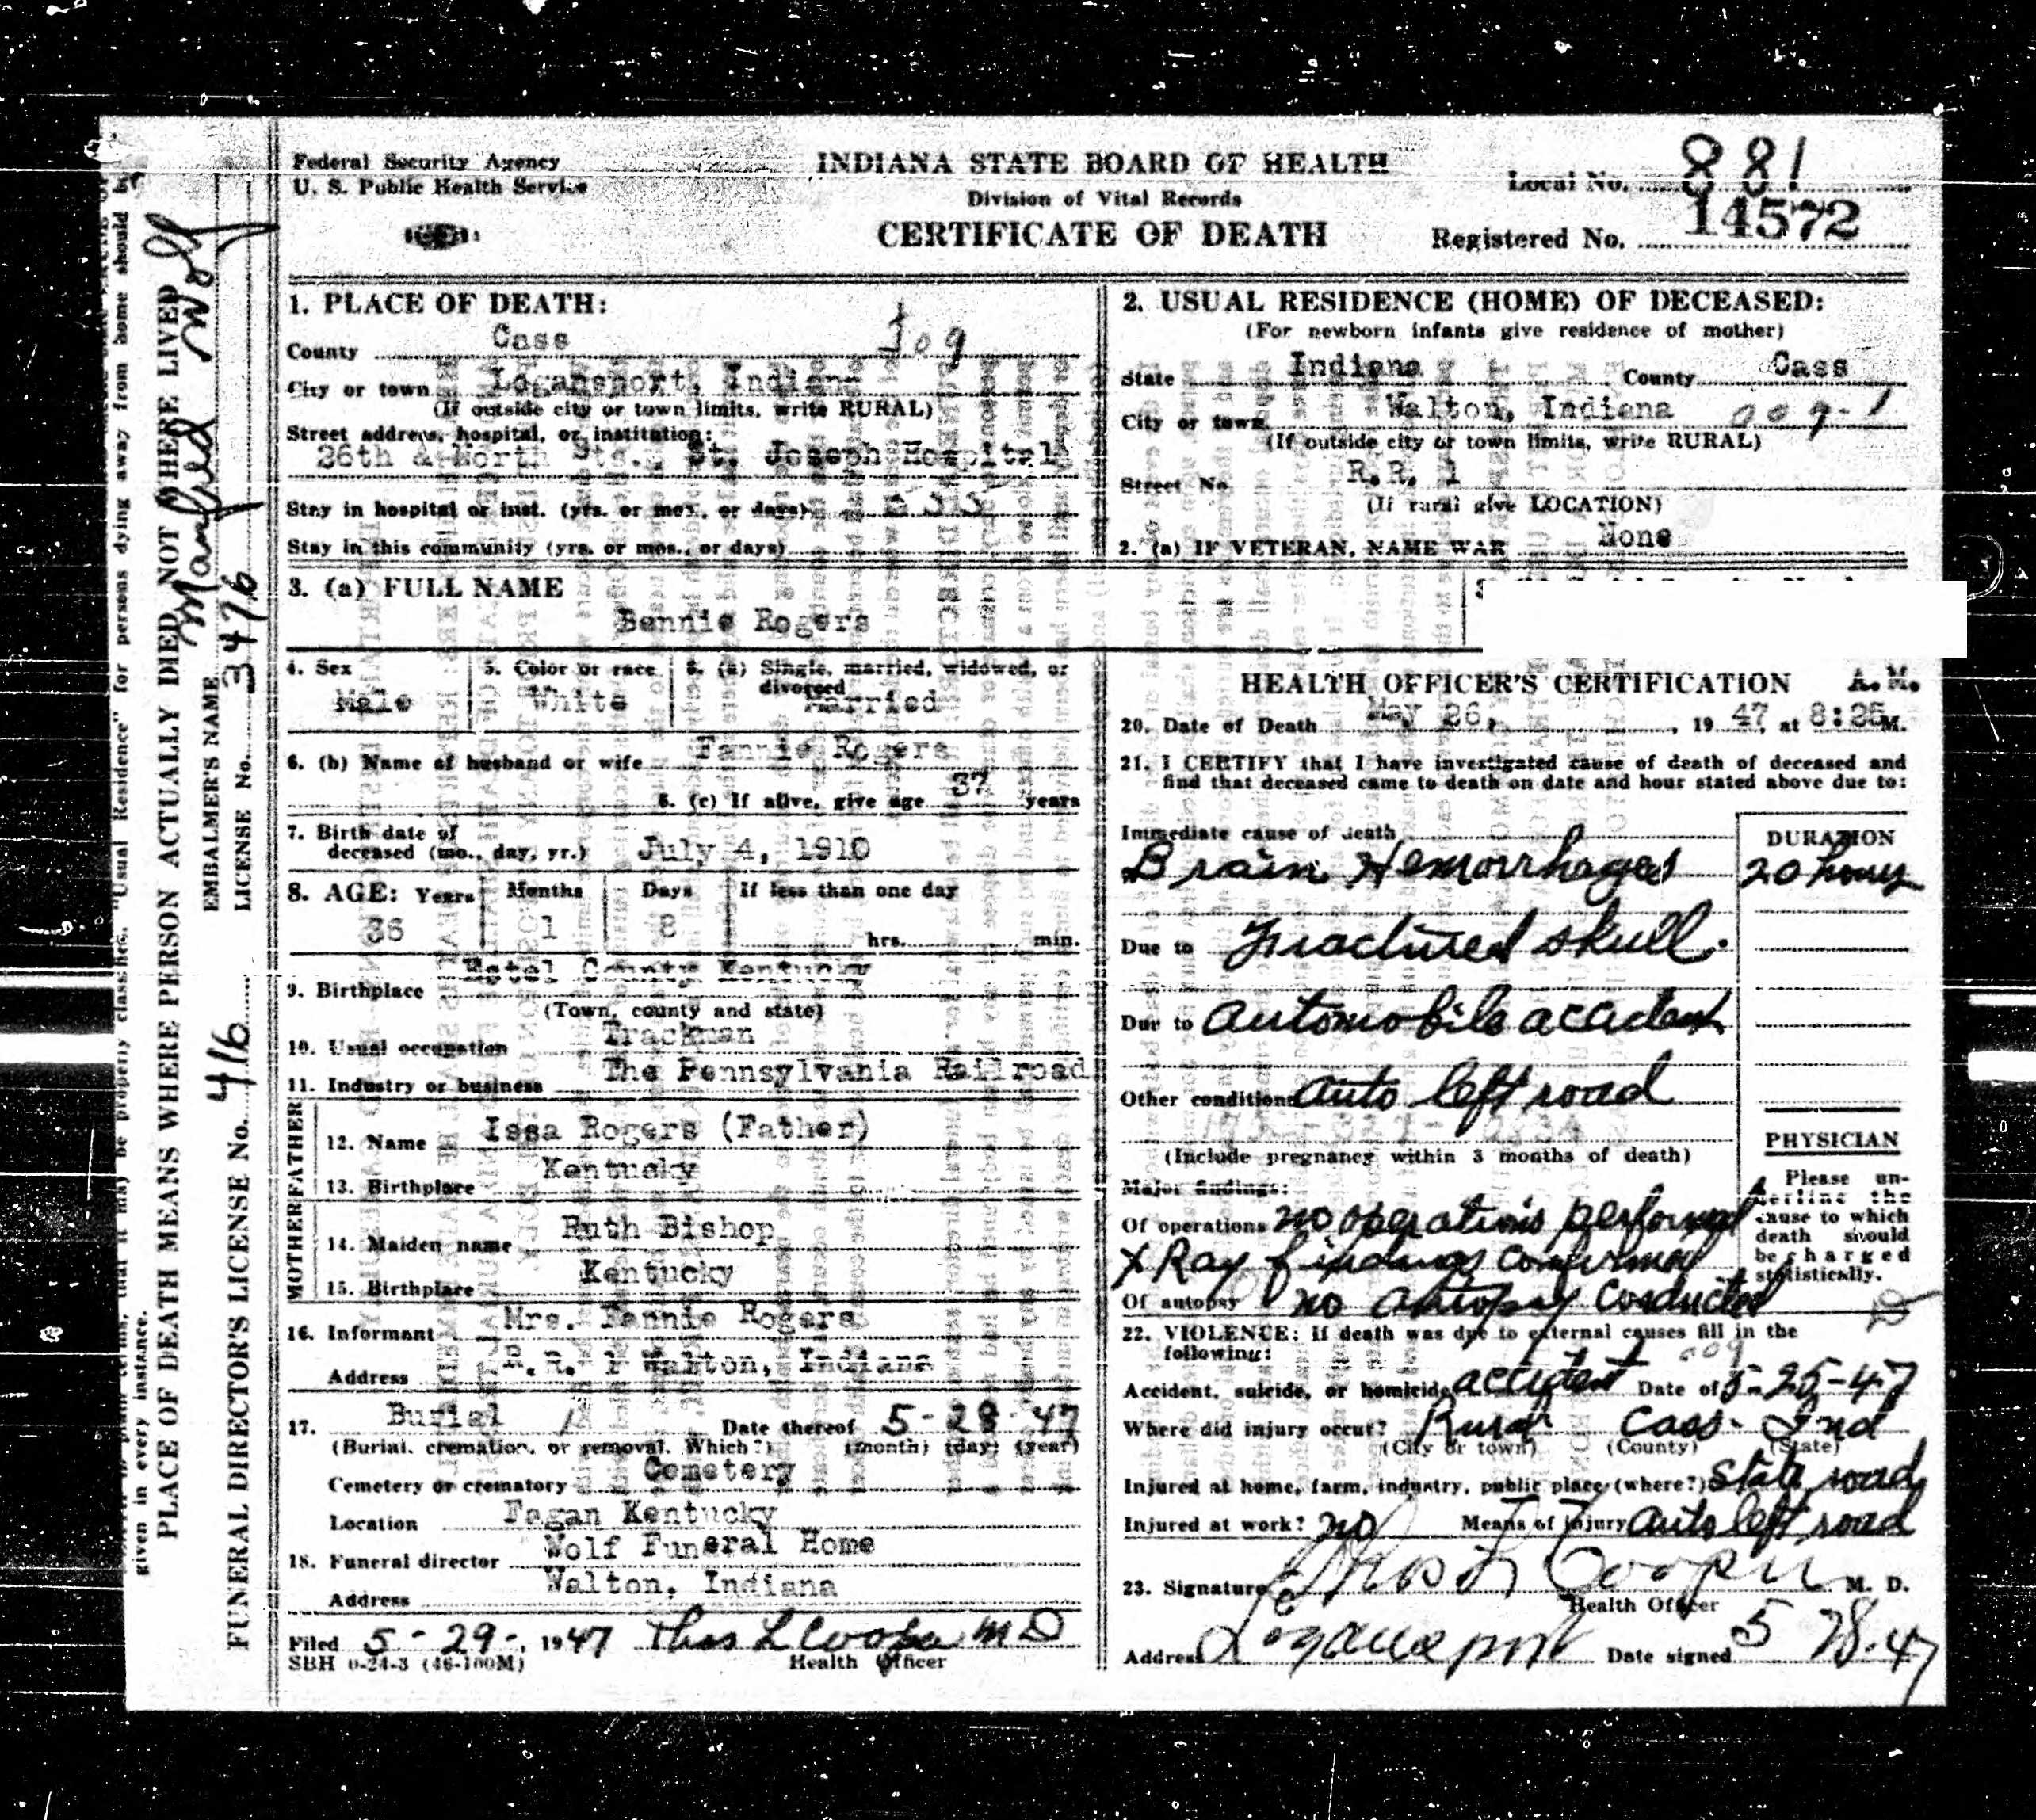 Federal Security Agency
U. S. Public Health Service
INDIANA STATE BOARD OF HEALTH
Division of Vital Records
CERTIFICATE OF DEATH
Local No. 881
Registered No. 14572
1. PLACE OF DEATH:
County Cass 109
City or town Logansport, Indiana
(If outside city or town limits, write RURAL)
Street address, hospital, or institution:
26th & North Sts., St. Joseph Hospital
Stay in hospital or inst. (yrs. or mos., or days)
Stay in this community (yrs. or mos., or days)
2. USUAL RESIDENCE (HOME) OF DECEASED:
(For newborn infants give residence of mother)
State Indiana County Cass
City or town Walton, Indiana 009-1
(If outside city or town limits, write RURAL)
Street No. R.R. 1
(If rural give LOCATION)
2. (a) IF VETERAN, NAME WAR None
3. (a) FULL NAME
Bennie Rogers
4. Sex
Male
5. Color or race
White
6. (a) Single, married, widowed, or
divorced
Married
6. (b) Name of husband or wife Fannie Rogers
6. (c) If alive, give age 37 years
7. Birth date of
deceased (mo., day, yr.) July 4, 1910
8. AGE: Years Months Days If less than one day
36 1 8 hrs. min.
9. Birthplace Estel County Kentucky
(Town, county and state)
10. Usual occupation Trackman
11. Industry or business The Pennsylvania Railroad
FATHER
12. Name Issa Rogers (Father)
13. Birthplace Kentucky
MOTHER
14. Maiden name Ruth Bishop
15. Birthplace Kentucky
16. Informant Mrs. Fannie Rogers
Address R.R. 1 Walton, Indiana
17. Burial Date thereof 5-28-47
(Burial, cremation, or removal. Which?) (month) (day) (year)
Cemetery or crematory Cemetery
Location Fagan Kentucky
18. Funeral director Wolf Funeral Home
Address Walton, Indiana
Filed 5-29-, 1947 Thos L Cooper MD
SBH 0-24-3 (46-100M) Health Officer
HEALTH OFFICER'S CERTIFICATION A.M.
20. Date of Death May 26, 1947 at 8:25 M.
21. I CERTIFY that I have investigated cause of death of deceased and
find that deceased came to death on date and hour stated above due to:
Immediate cause of death
DURATION
Brain Hemorrhages 20 hours
Due to Fractured skull.
Due to Automobile accident
Other conditions Auto left road
(Include pregnancy within 3 months of death)
Major findings:
Of operations no operations performed
X Ray findings confirmed
Of autopsy no autopsy conducted
PHYSICIAN
Please un-
derline the
cause to which
death should
be charged
statistically.
22. VIOLENCE: If death was due to external causes fill in the
following: 009
Accident, suicide, or homicide accident Date of 5-25-47
Where did injury occur? Rural Cass Ind
(City or town) (County) (State)
Injured at home, farm, industry, public place (where?) State road
Injured at work? no Means of injury auto left road
23. Signature Thos L Cooper M. D.
Health Officer
Address Logansport Date signed 5 28-47
given in every instance.
PLACE OF DEATH MEANS WHERE PERSON ACTUALLY DIED, NOT WHERE LIVED
EMBALMER'S NAME Manfred Wolf
FUNERAL DIRECTOR'S LICENSE No. 416 LICENSE No. 3476